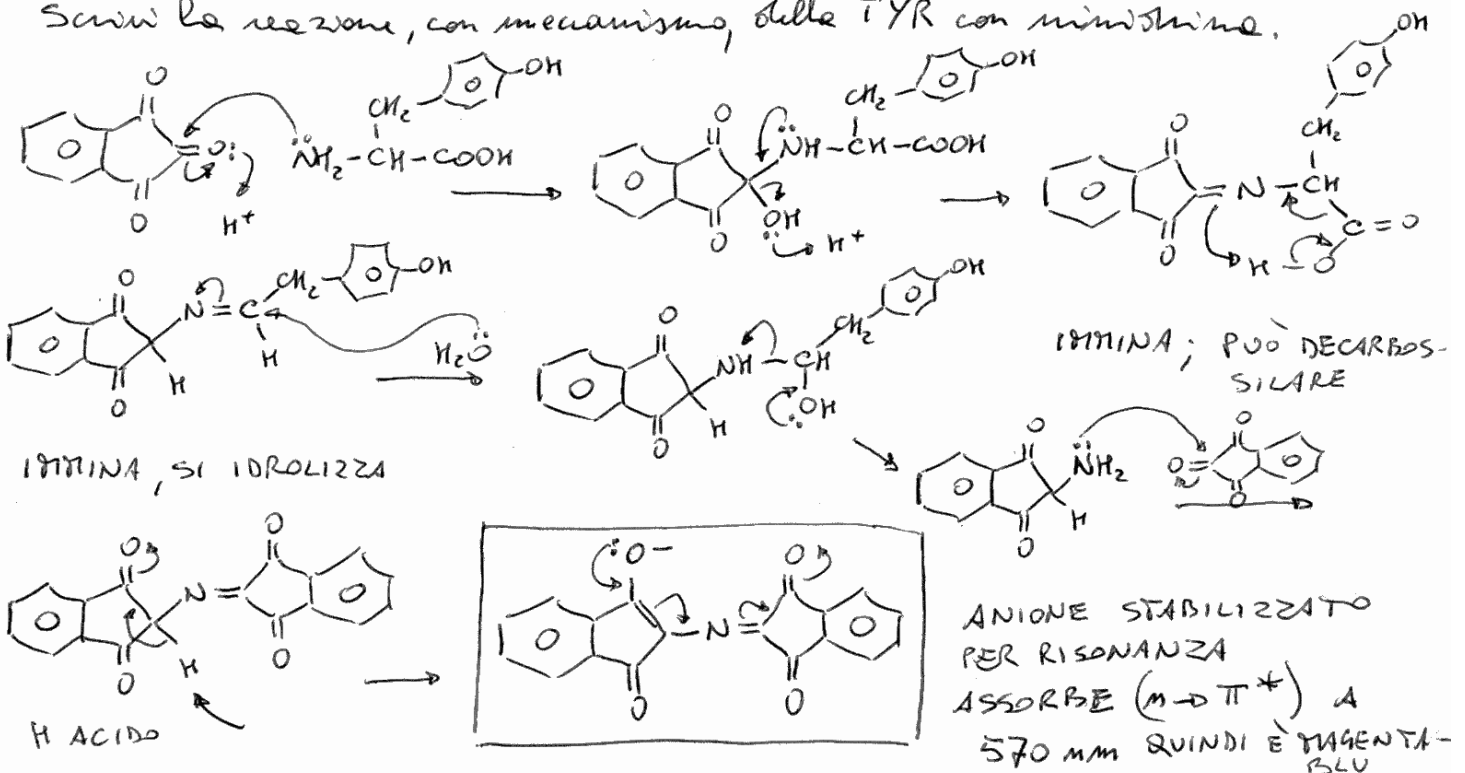 Scrivi la reazione, con meccanismo, della TYR con ninidrina.
O
O
O:
H+
N̈H2-CH-COOH
CH2
OH
O
O
N̈H-CH-COOH
CH2
OH
OH
H+
O
O
N
CH
CH2
OH
C=O
H-O
O
O
H
N=C
H
CH2
OH
H2Ö
O
O
H
NH-CH
OH
CH2
OH
IMMINA; PUÒ DECARBOS-
SILARE
IMMINA, SI IDROLIZZA
O
O
H
N̈H2
O=
O
O
O
O
H
N=
O
O
H ACIDO
:O-
O
-N=
O
O
ANIONE STABILIZZATO
PER RISONANZA
ASSORBE (n→π*) A
570 nm QUINDI È MAGENTA-
BLU